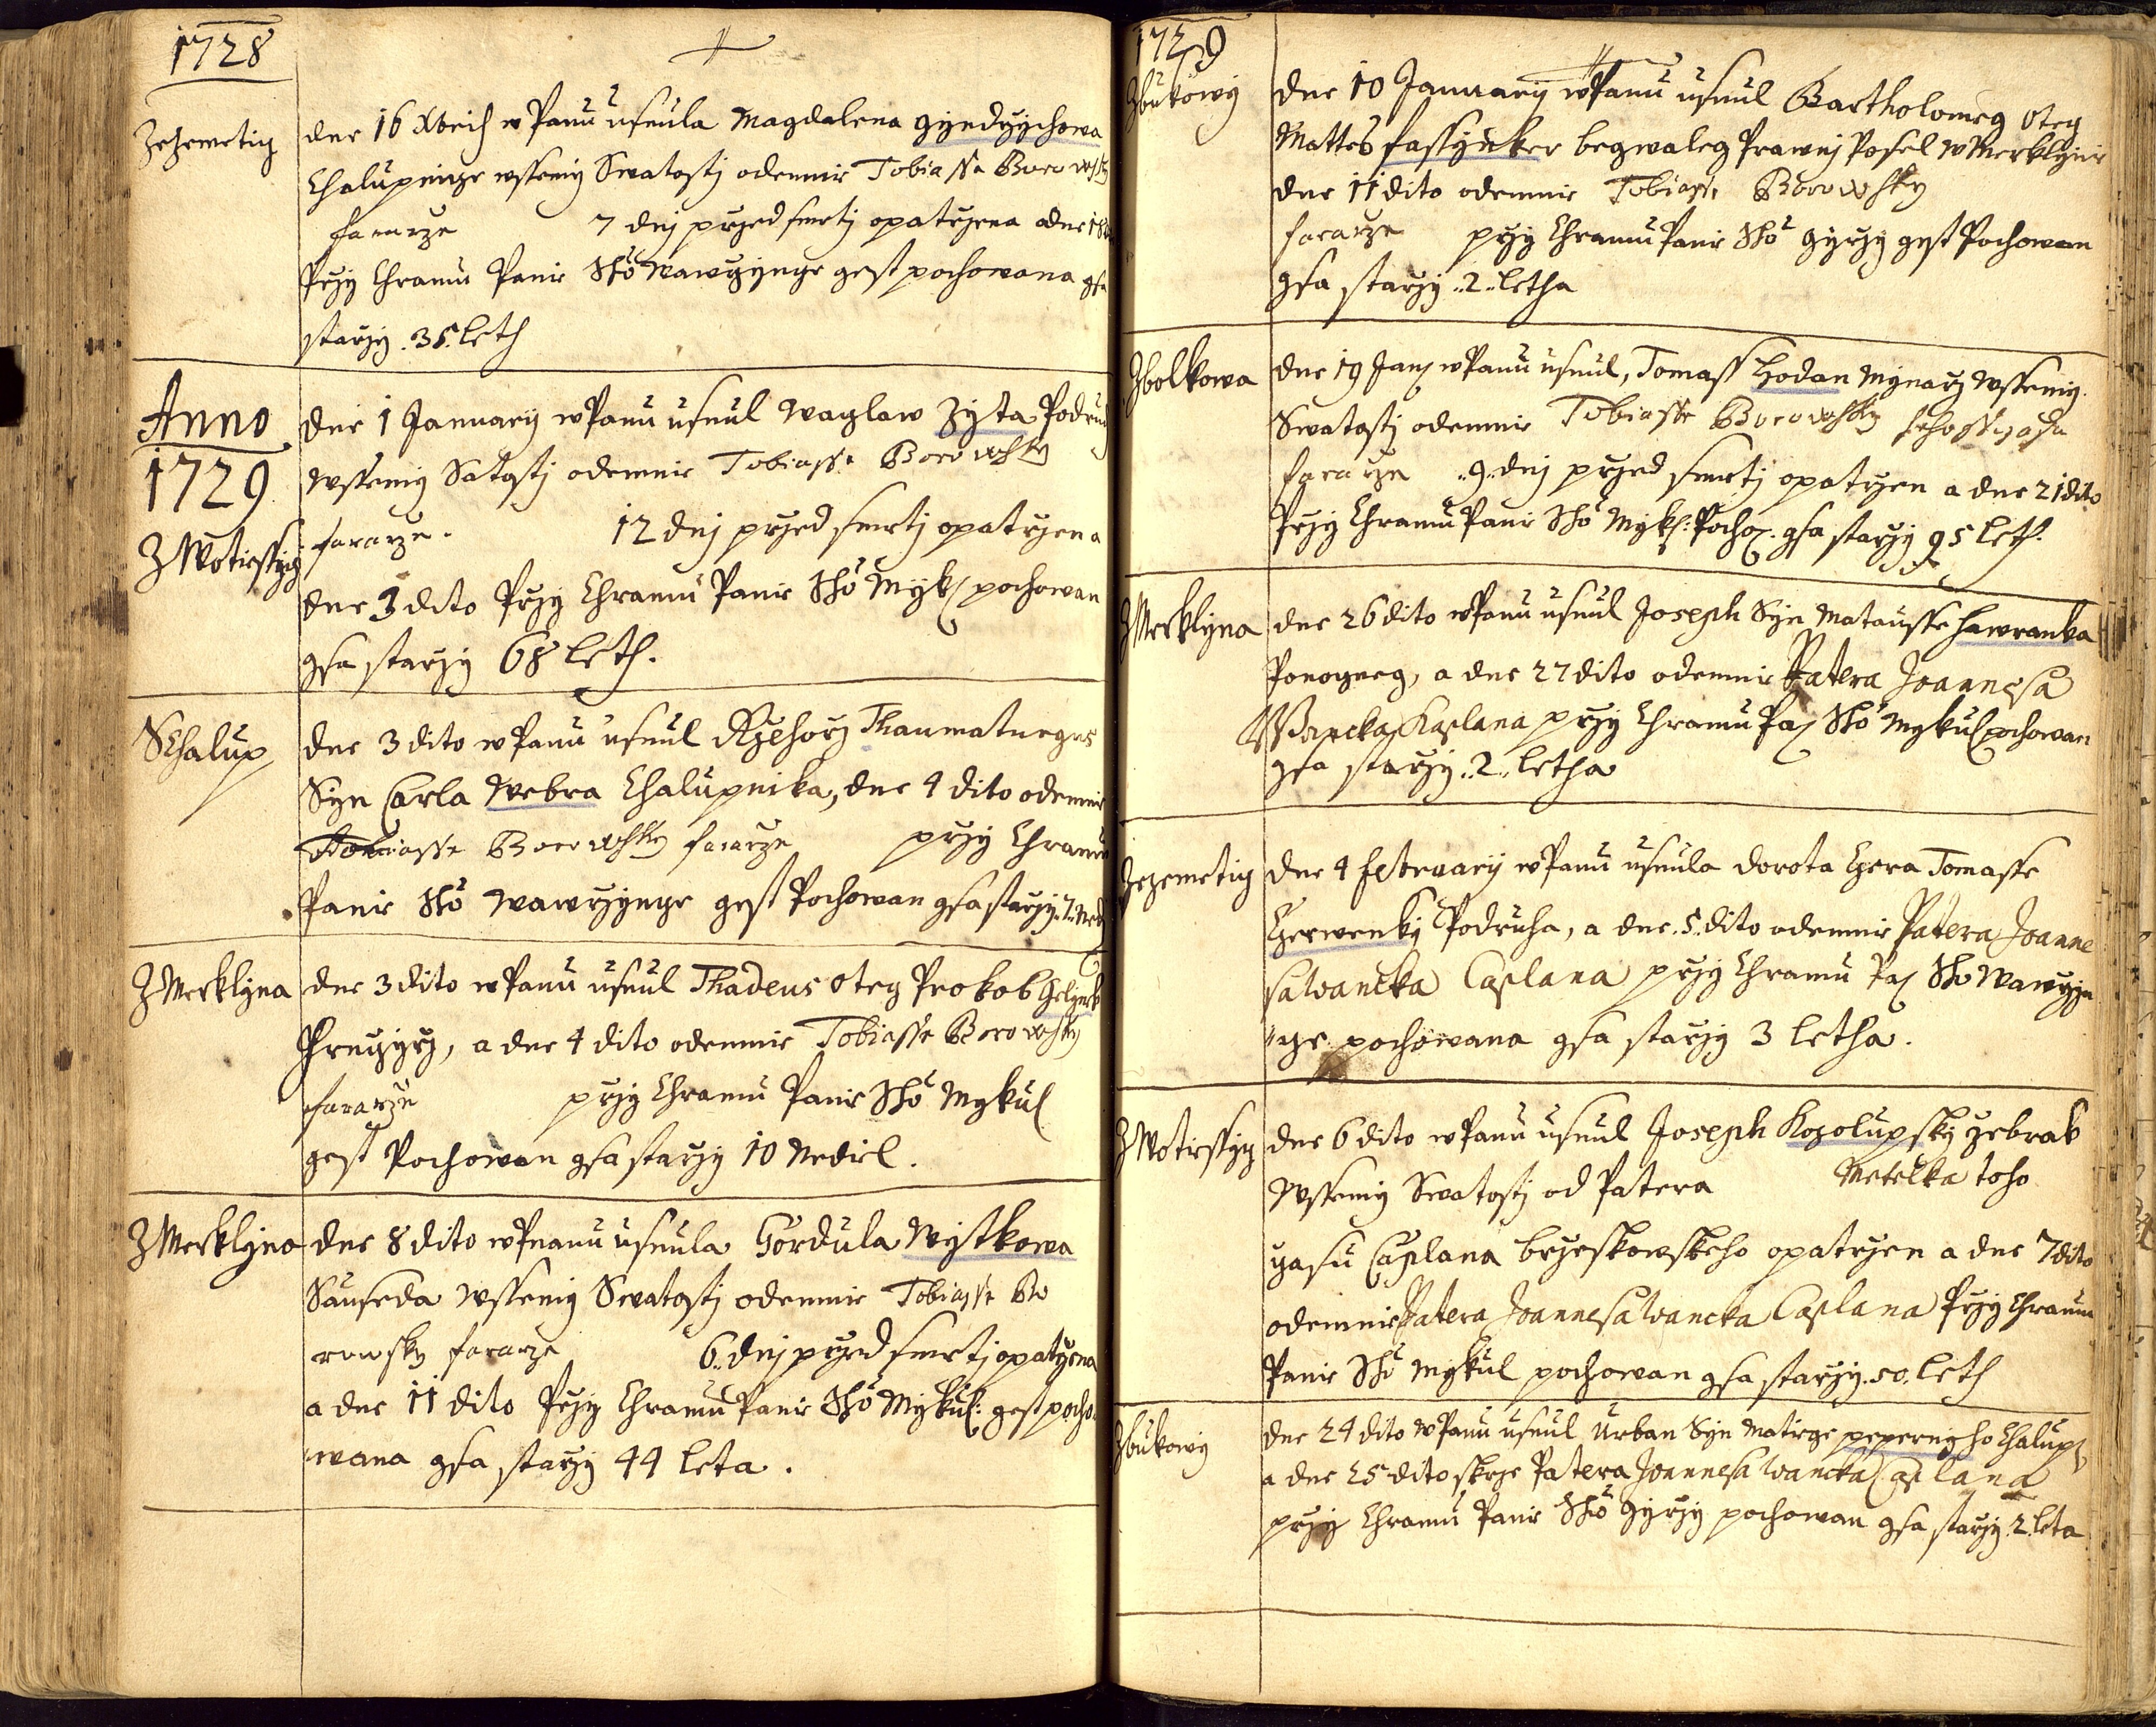 1728
Zezemetig
dne 16 Xbrih w Panu usnula Magdalena Gyndrzychowa
Chalupnicze wssemy Swatostj odemnie Tobiasse Borowsky
fararze 7 dnj przed smrtj opatrzena a dne 18
Przy Chramu Panie Sho Wawrzynge gest pochowana gsa
starzy .35. leth
Anno
1729
Z Wotiessyg
dne 1 January w Panu usnul Waglaw Zyta Podruh
wssemy Satostj odemnie Tobiasse Borowsky
fararze. 12 dnj przed smrtj opatrzen a
dne 3 dito Przy Chramu Panie Sho Myk pochowan
gsa starzy 68 leth.
S Chalup
dne 3 dito w Panu usnul Rzehorz Thaumaturgus
Syn Carla Webra Chalupnika, dne 4 dito odemnie
Tobiasse Borowsky fararze przy Chramu
Panie Sho Wawrzynge gest Pochowan gsa starzy .7. Ned
Z Merklyna
dne 3 dito w Panu usnul Thadeus Oteg Prokob
a dne 4 dito odemnie Tobiasse Borowsky
fararze przy Chramu Panie Sho Mykul
gest Pochowan gsa starzy 10 Nediel.
Z Merklyna
dne 8 dito w Pnanu usnula Gordula Wystkowa
Sauseda wssemy Swatostj odemnie Tobiasse Bo
rowsky fararze 6. dnj przed smrtj opatrzena
a dne 11 dito Przy Chramu Panie Sho Mykul: gest pocho
wana gsa starzy 44 leta.
1729
Zbukowy
dne 10 January w Panu usnul Bartholomeg Oteg
Mattes fassyncker begwaleg Prawnj Posel w Merklynie
dne 11 dito odemnie Tobiasse Borowsky
fararze przy Chramu Panie Sho Gyrzy gest Pochowan
gsa starzy ..2.. letha
Zbolkowa
dne 19 Jan w Panu usnul, Tomass Hodan Mynarz wssemy
Swatostj odemnie Tobiasse Borowsky
fararze ..9.. dnj przed smrtj opatrzen a dne 21 dito
Przy Chramu Panie Sho Myk: Pocho. gsa starzy 95 leth.
Z Merklyna
dne 26 dito w Panu usnul Joseph Syn Matausse Hawranka
Ponogneg, a dne 27 dito odemnie Patera Joannesa
Wancka Kaplana przy Chramu Pa Sho Mykul pochowan
gsa starzy ..2.. letha
Zezemetig
dne 4 February w Panu usnula Dorota Czera Tomasse
Czerwenky Podruha, a dne .5. dito odemnie Patera Joanne
sa Wancka Caplana przy Chramu Pa Sho Wawrzyn
ge pochowana gsa starzy 3 letha.
Z Wotiessyg
dne 6 dito w Panu usnul Joseph Kozolupsky zebrak
Wssemy Swatostj od Patera Metelka toho
gasu Caplana brzeskowskeho opatrzen a dne 7 dito
odemnie Patera Joannesa Wancka Caplana Przy Chramu
Panie Sho Mykul pochowan gsa starzy .50. leth
Zbukowy
dne 24 dito w Panu usnul Urban Syn Matiege pepernyho Chalup
a dne 25 dito skrze Patera Joannesa Wancka Caplana
przy Chramu Panie Sho Gyrzy pochowan gsa starzy .2. leta